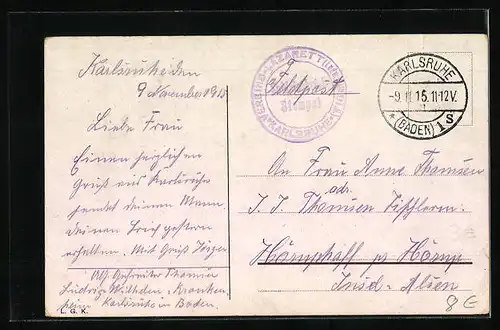 Karlsruhe den
9 November 1915
Liebe Frau
Einen herzlichen
Gruß aus Karlsruhe
sendet deinen Mann
deinen Brief gestern
erhalten. Mit Gruß
Ludwig Wilhelm Kranken
heim Karlsruhe in Baden.
L. G. K.
Feldpost
Stempel
KARLSRUHE
-9.11.15.11-12V.
* (BADEN) 1S
An Frau Anne Thamsen
adr.
J. J. Thamsen Tischlerm.
Hörup
Insel-Alsen
8E